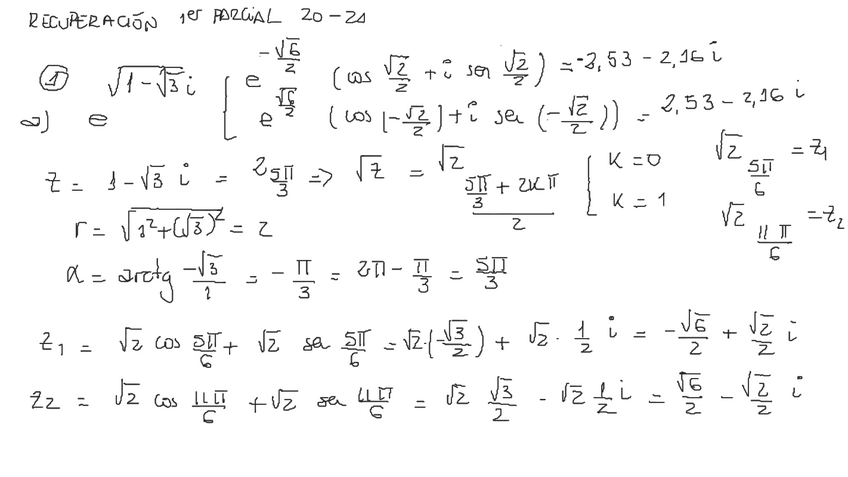 RECUPERACIÓN 1er PARCIAL 20-21
① a) e^{√(1-√3 i)} { e^{-√6/2} (cos √2/2 + i sen √2/2) = -2,53 - 2,16 i
e^{√6/2} (cos [-√2/2] + i sen (-√2/2)) = 2,53 - 2,16 i
z = 1-√3 i = 2_{5π/3} => √z = √2_{(5π/3 + 2Kπ)/2} { K=0 √2_{5π/6} = z₁
K = 1 √2_{11π/6} = z₂
r = √(1²+(√3)²) = 2
α = arctg -√3/1 = -π/3 = 2π - π/3 = 5π/3
z₁ = √2 cos 5π/6 + √2 sen 5π/6 = √2·(-√3/2) + √2 · 1/2 i = -√6/2 + √2/2 i
z₂ = √2 cos 11π/6 + √2 sen 11π/6 = √2 √3/2 - √2 1/2 i = √6/2 - √2/2 i